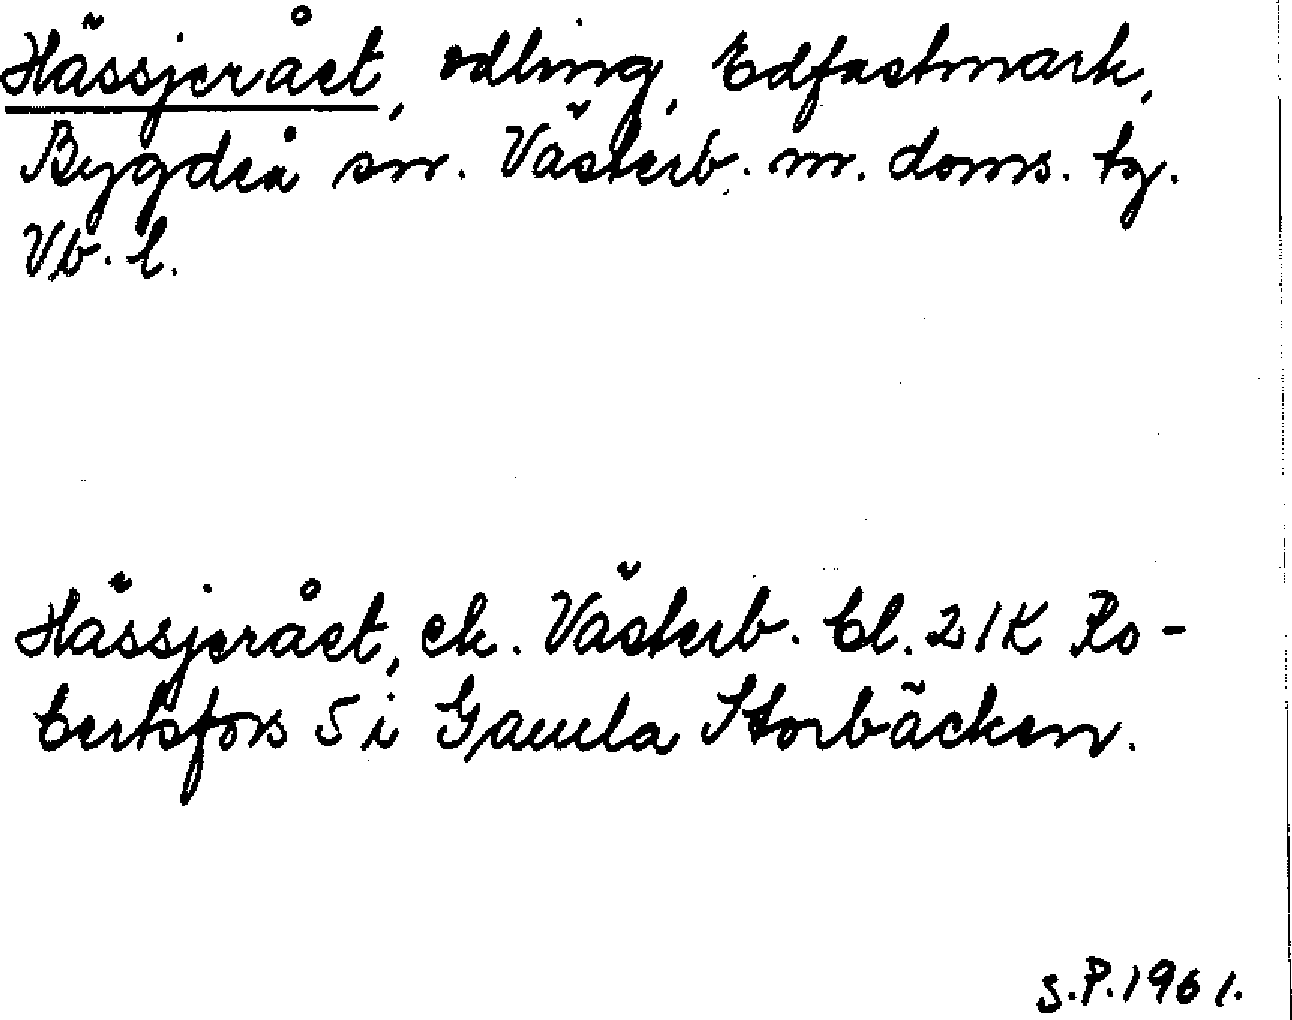 Hässjerået, odling, Edfastmark,
Bygdeå sn. Västerb. n. doms. tg.
Vb. l.
Hässjerået, ek. Västerb. bl. 21K Ro-
bertsfors 5 i Gamla Storbäcken.
S.P. 1961.